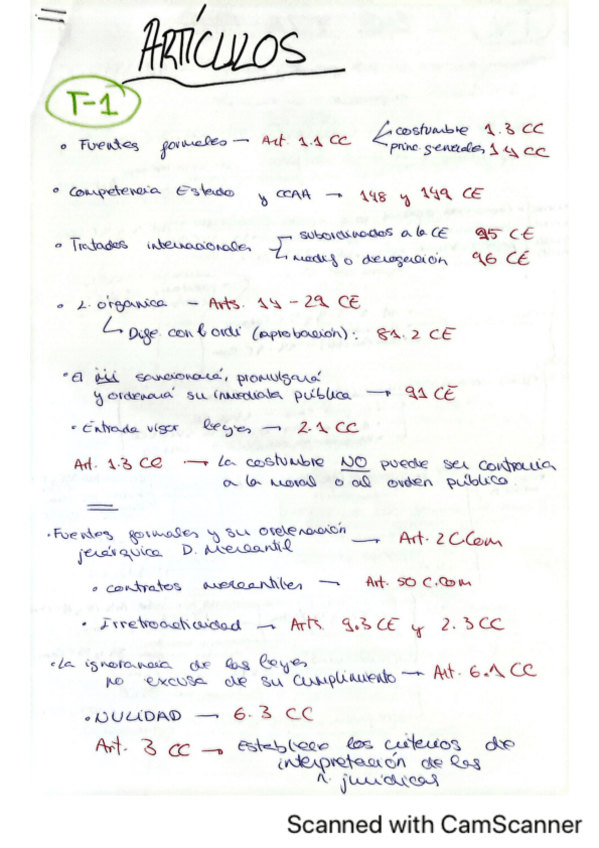 ARTÍCULOS
T-1
• Fuentes formales — Art 1.1 CC costumbre 1.3 CC
princ. generales 1.4 CC
• Competencia Estado y CCAA → 148 y 149 CE
• Tratados internacionales subordinados a la CE 95 CE
modif o derogación 96 CE
• L. orgánica — Arts. 14 - 29 CE
Dife. con l ordi (aprobación): 81.2 CE
• El sancionará, promulgará
y ordenará su inmediata pública → 91 CE
• Entrada vigor leyes → 2.1 CC
Art. 1.3 CC → La costumbre NO puede ser contraria
a la moral o al orden pública.
• Fuentes formales y su ordenación
jerárquica D. Mercantil → Art. 2 C.Com
• contratos mercantiles → Art. 50 C.Com
• Irretroactividad → Arts. 9.3 CE y 2.3 CC
• La ignorancia de las leyes
no excusa de su cumplimiento → Art. 6.1 CC
• NULIDAD → 6.3 CC
Art. 3 CC → Establece los criterios de
interpretación de las
n. jurídicas
Scanned with CamScanner